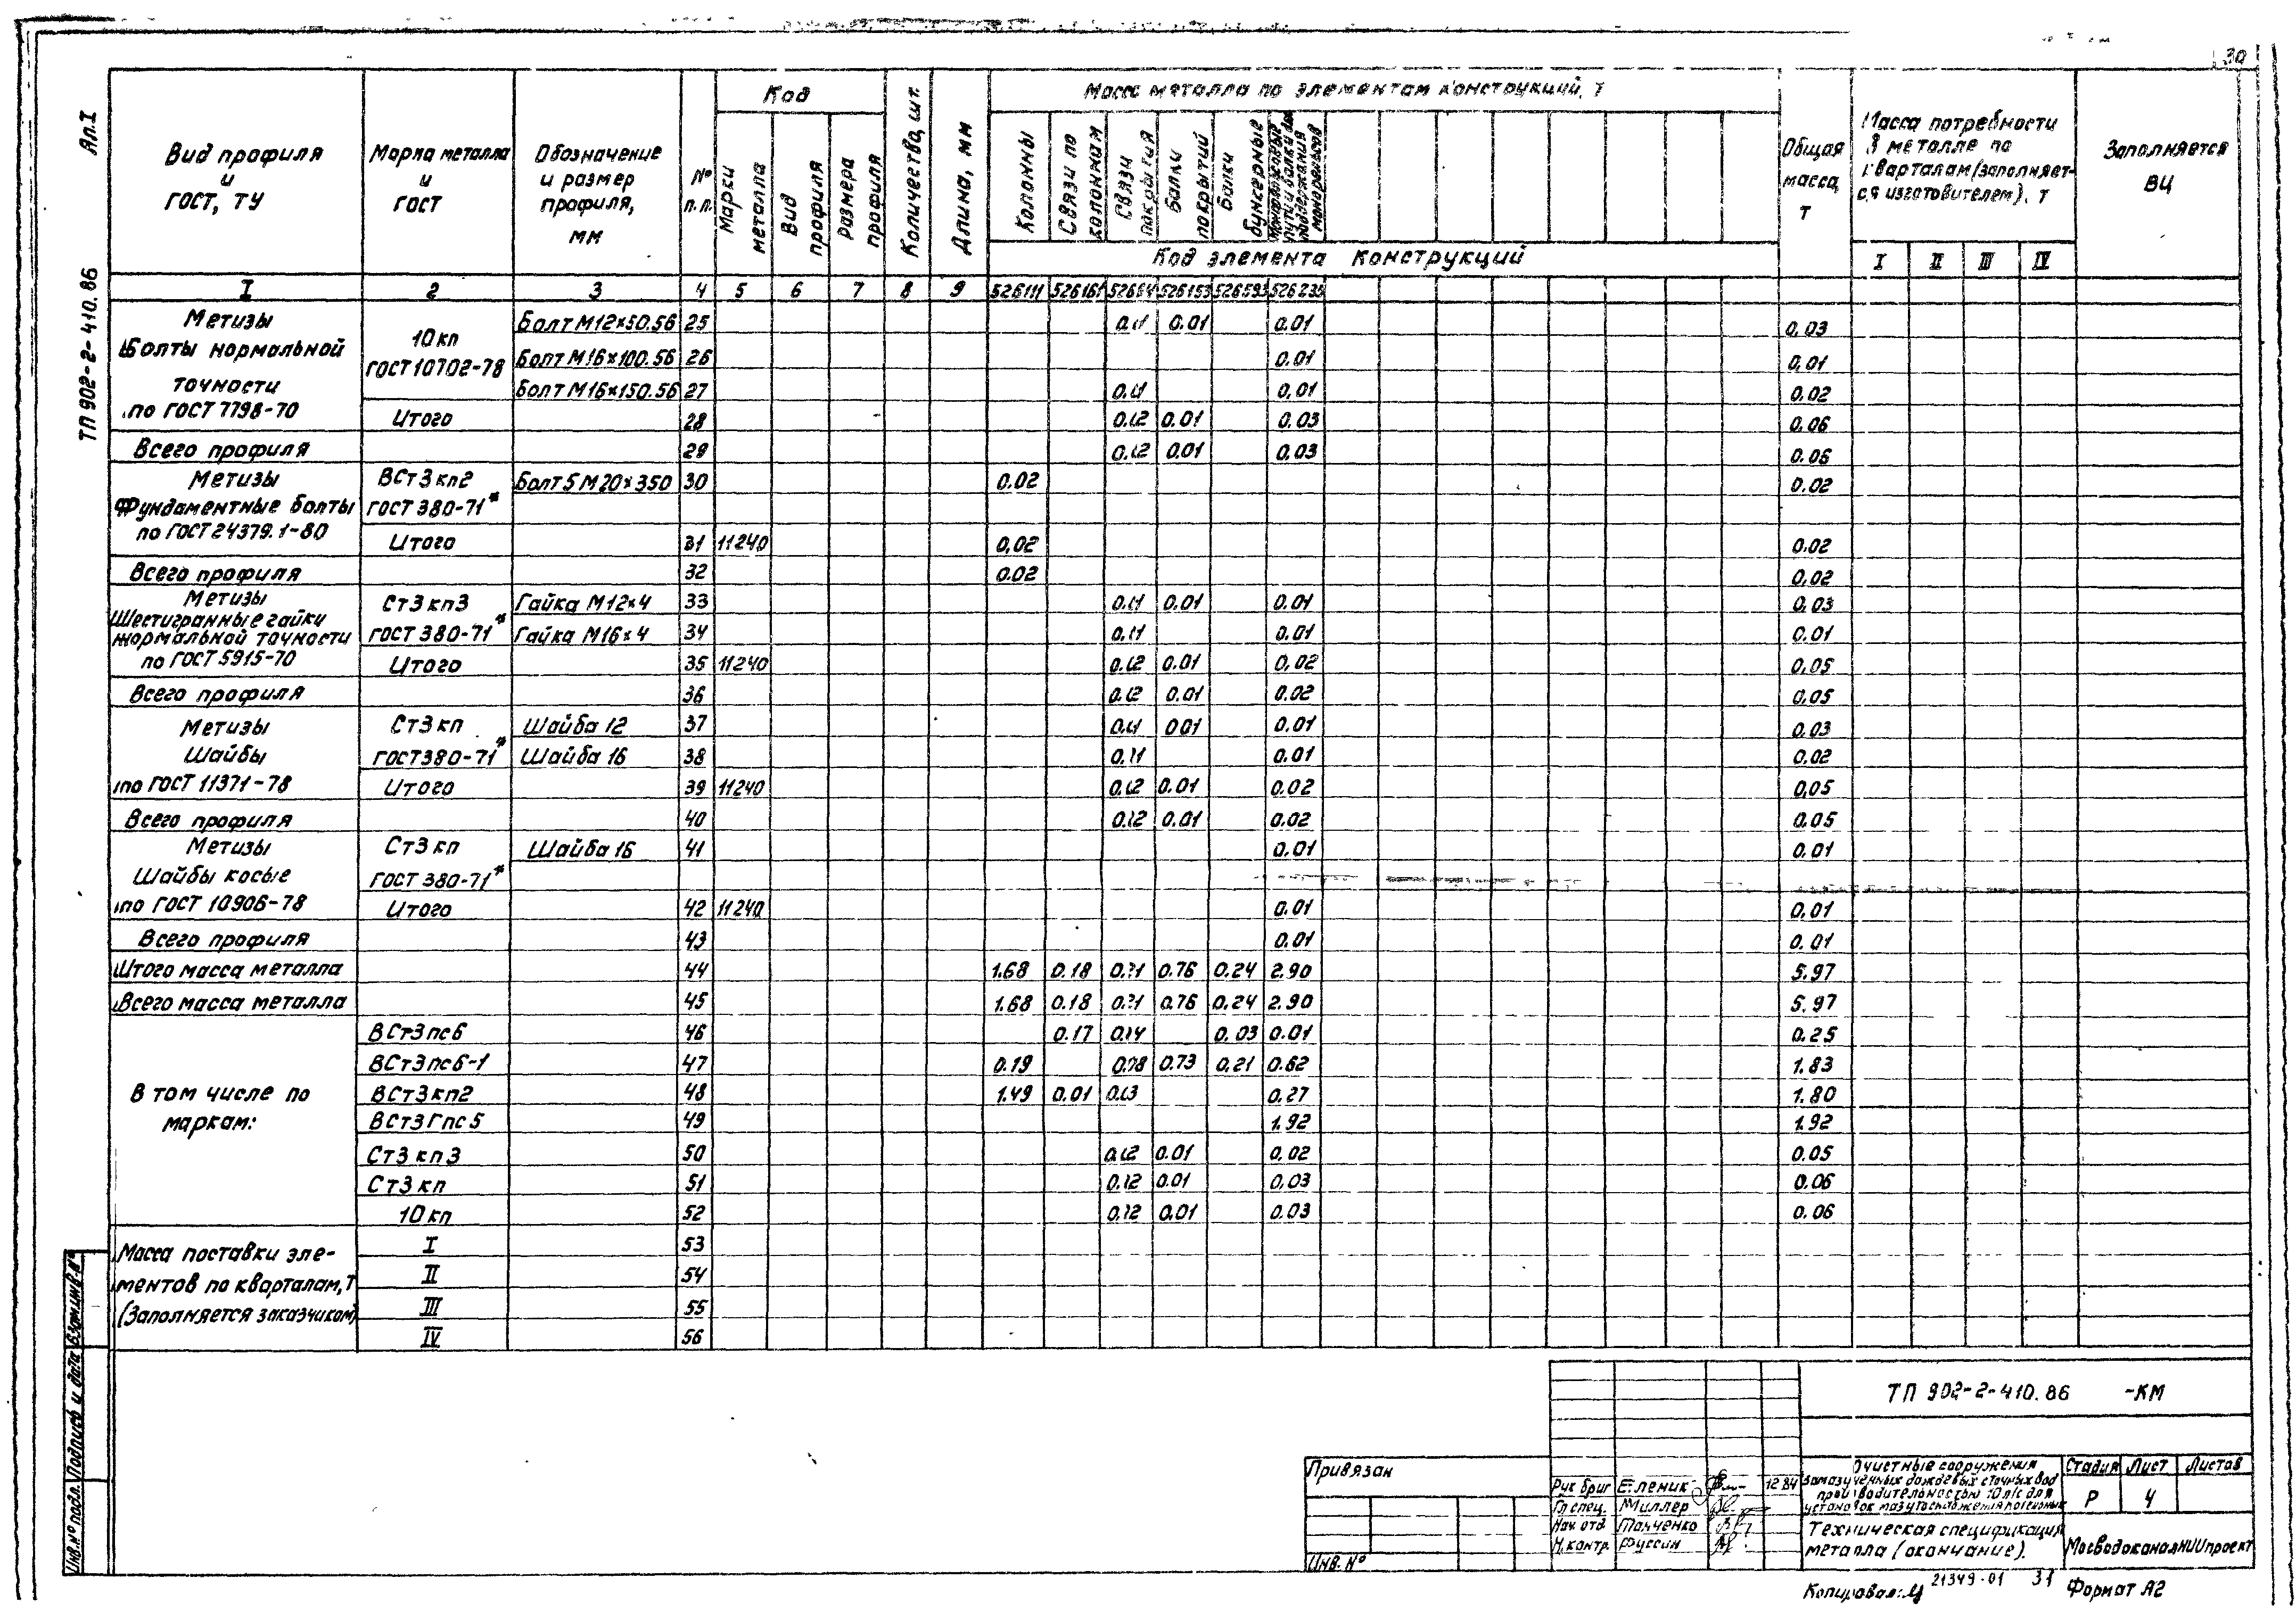 30
Ал.I
ТП 902-2-410.86
Вид профиля и ГОСТ, ТУ
Марка металла и ГОСТ
Обозначение и размер профиля, мм
№ п.п.
Код
Марки металла
Вид профиля
Размера профиля
Количество, шт.
Длина, мм
Масса металла по элементам конструкций, т
Колонны
Связи по колоннам
Связи покрытия
Балки покрытий
Балки бункерные
Код элемента конструкций
Общая масса, т
Масса потребности в металле по кварталам (заполняется изготовителем), т
I II III IV
Заполняется ВЦ
1 2 3 4 5 6 7 8 9 526111 526153 526235
Метизы Болты нормальной точности по ГОСТ 7798-70
10кп ГОСТ 10702-78
Болт М12×50.56 25 0.01 0.01 0.01 0.03
Болт М16×100.56 26 0.01 0.01
Болт М16×150.56 27 0.01 0.01 0.02
Итого 28 0.02 0.01 0.03 0.06
Всего профиля 29 0.02 0.01 0.03 0.06
Метизы Фундаментные болты по ГОСТ 24379.1-80
ВСт3кп2 ГОСТ 380-71*
Болт 5 М20×350 30 0.02 0.02
Итого 31 11240 0.02 0.02
Всего профиля 32 0.02 0.02
Метизы Шестигранные гайки нормальной точности по ГОСТ 5915-70
Ст3кп3 ГОСТ 380-71*
Гайка М12×4 33 0.01 0.01 0.01 0.03
Гайка М16×4 34 0.01 0.01 0.01
Итого 35 11240 0.02 0.01 0.02 0.05
Всего профиля 36 0.02 0.01 0.02 0.05
Метизы Шайбы по ГОСТ 11371-78
Ст3кп ГОСТ 380-71*
Шайба 12 37 0.01 0.01 0.01 0.03
Шайба 16 38 0.01 0.01 0.02
Итого 39 11240 0.02 0.01 0.02 0.05
Всего профиля 40 0.02 0.01 0.02 0.05
Метизы Шайбы косые по ГОСТ 10906-78
Ст3кп ГОСТ 380-71*
Шайба 16 41 0.01 0.01
Итого 42 11240 0.01 0.01
Всего профиля 43 0.01 0.01
Итого масса металла 44 1.68 0.18 0.76 0.24 2.90 5.97
Всего масса металла 45 1.68 0.18 0.76 0.24 2.90 5.97
В том числе по маркам:
ВСт3пс6 46 0.17 0.03 0.01 0.25
ВСт3пс6-1 47 0.19 0.73 0.21 0.62 1.83
ВСт3кп2 48 1.49 0.01 0.03 0.27 1.80
ВСт3Гпс5 49 1.92 1.92
Ст3кп3 50 0.02 0.01 0.02 0.05
Ст3кп 51 0.02 0.01 0.03 0.06
10кп 52 0.02 0.01 0.03 0.06
Масса поставки элементов по кварталам, т (Заполняется заказчиком)
I 53
II 54
III 55
IV 56
Инв.№ подл. Подпись и дата Взам.инв.№
Привязан
Инв. №
Рук бриг Еленик 12.84
Гл спец. Миллер
Нач. отд.
Н.контр. Фуссин
ТП 902-2-410.86 -КМ
Очистные сооружения замазученных дождевых сточных вод производительностью 10 л/с для
Техническая спецификация металла (окончание).
Стадия Лист Листов
Р 4
МосводоканалНИИпроект
Копировал:
21349-01 31
Формат А2